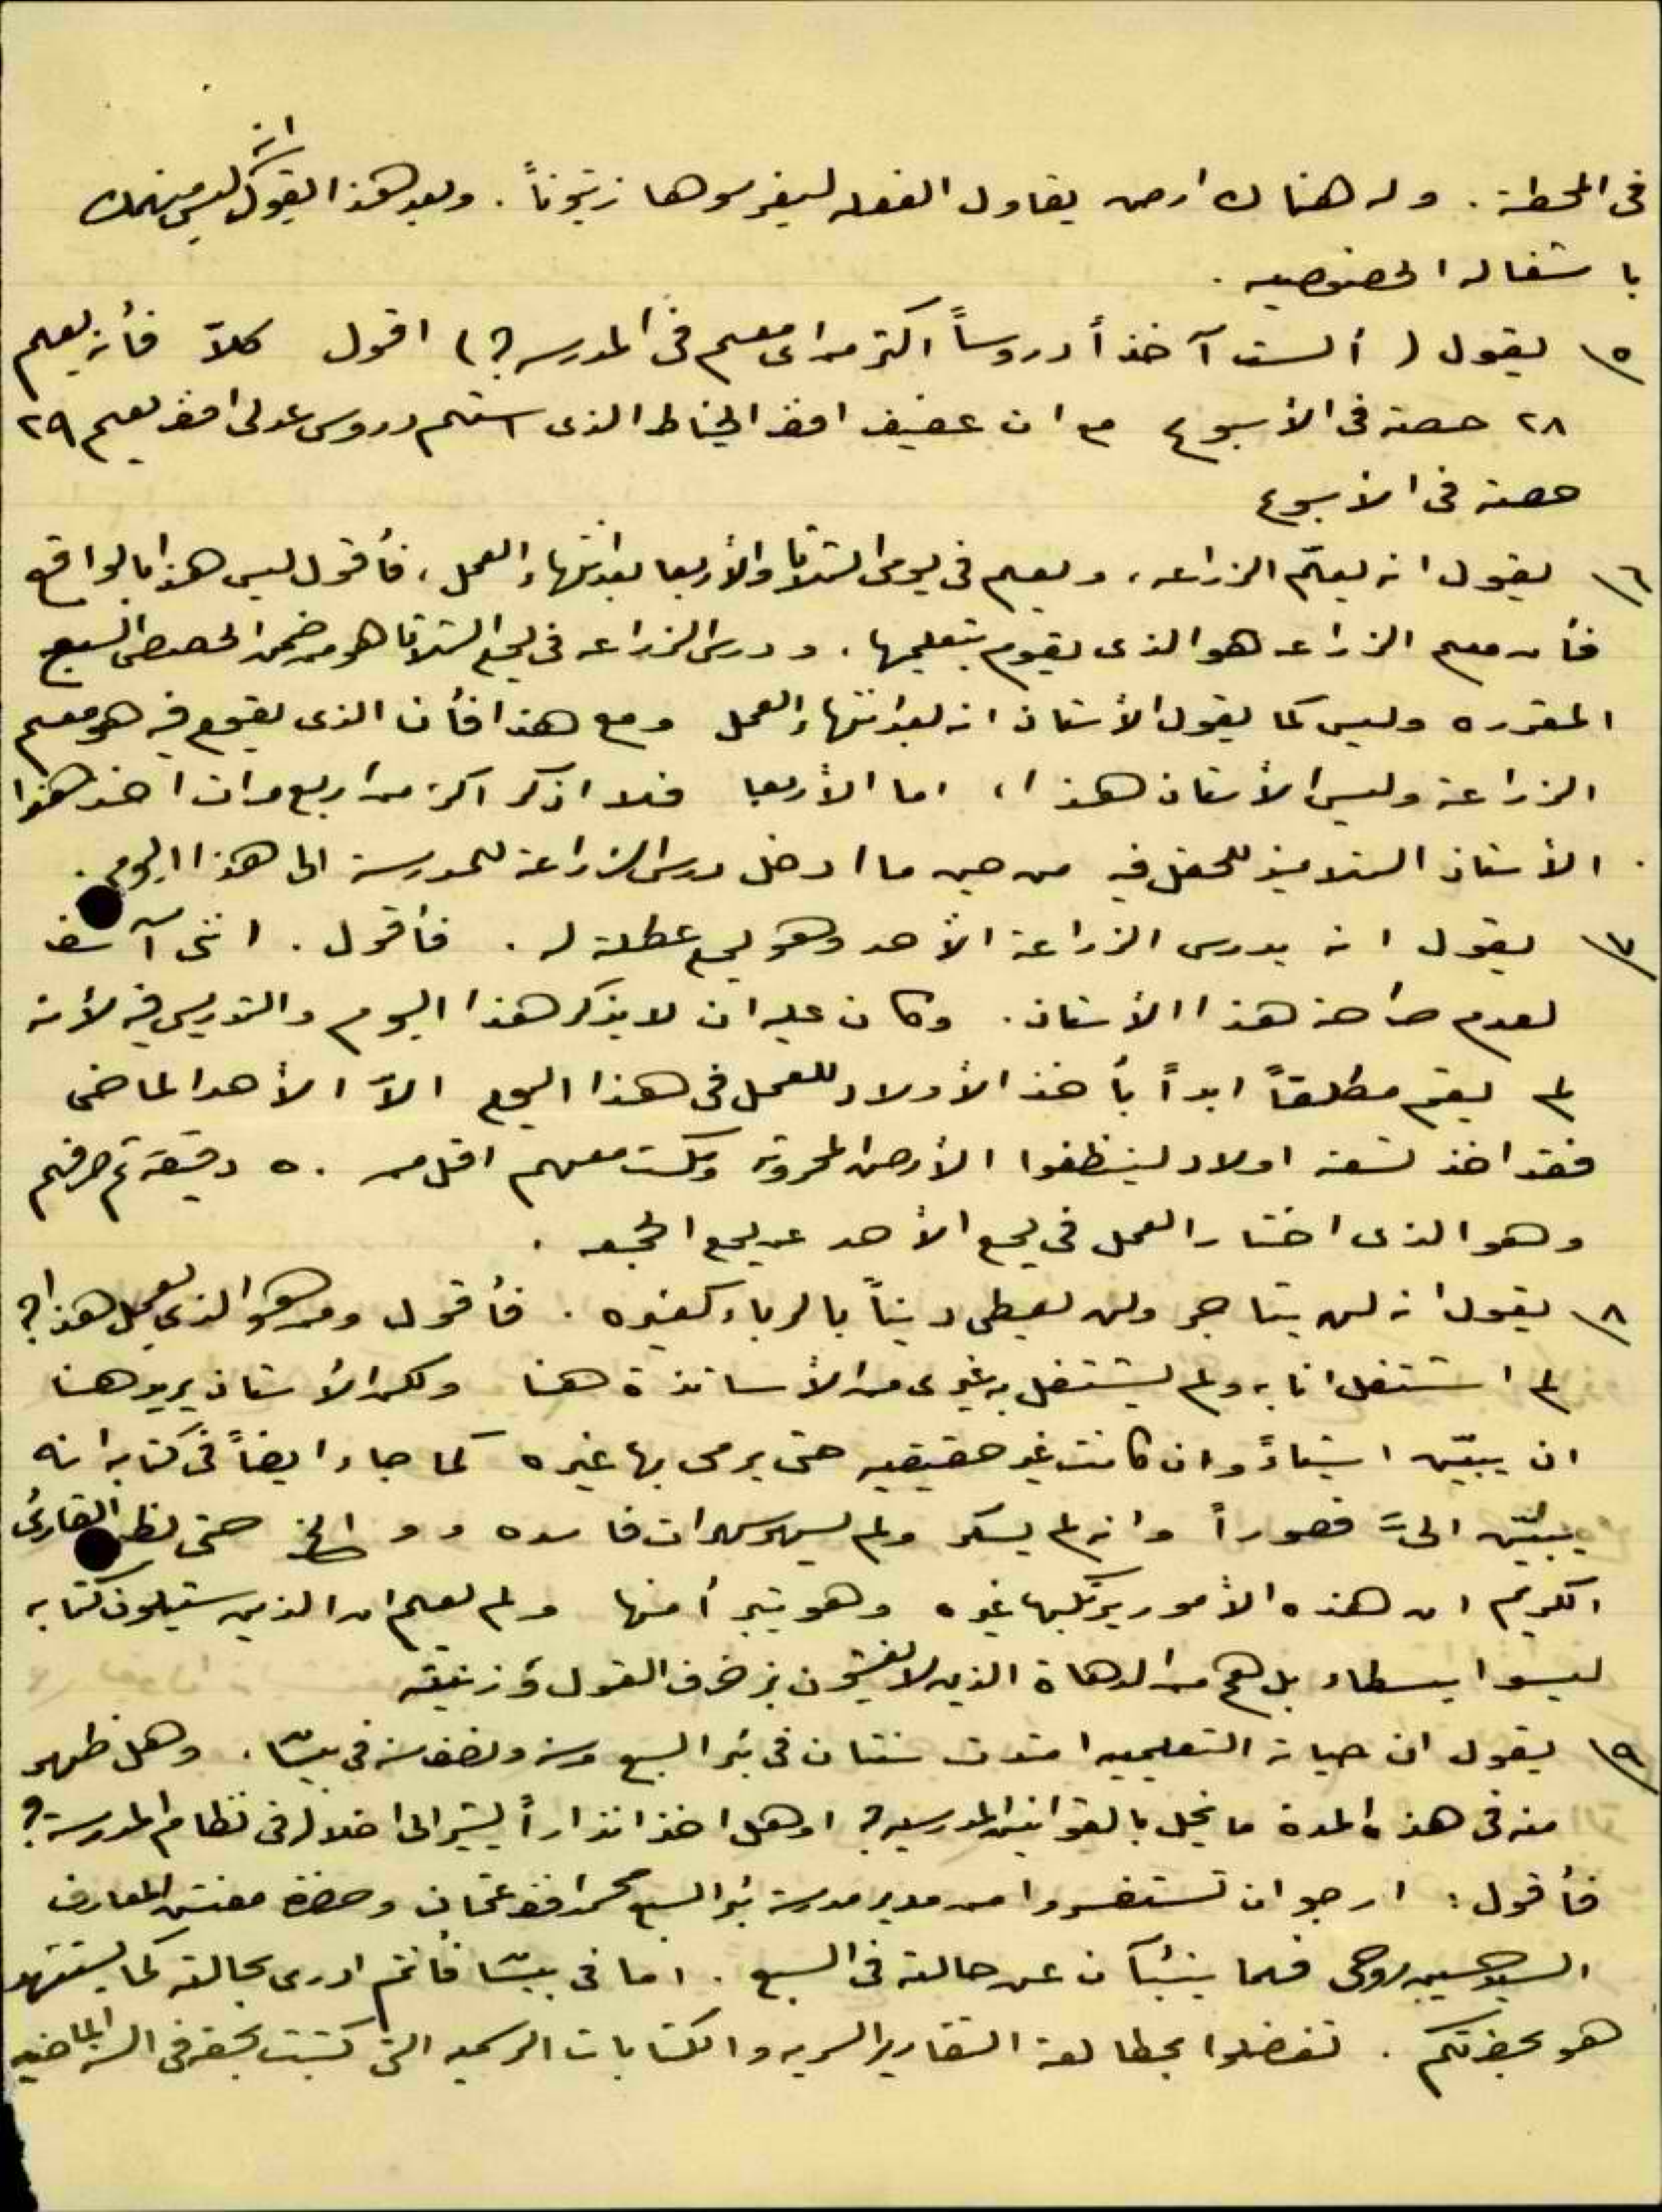 في المحطة . وله هناك ارض يقاول الفعله ليغرسوها زيتوناً . وبعد هذا يقول انه ليس منهمك
باشغاله الخصوصيه .
٥\ يقول ( ألست آخذاً دروساً اكثر من اي معلم في المدرسه ؟ ) اقول كلاّ فأنه يعلم
٢٨ حصة في الأسبوع مع ان عفيف افندي الخياط الذي استلم دروس عدلي افندي يعلم ٢٩
حصة في الأسبوع
٦\ يقول انه يعلّم الزراعه ، ويعلم في يومي الثلاثا والأربعا بعد انتهاء العمل ، فأقول ليس هذا بالواقع
فأن معلم الزراعه هو الذي يقوم بتعليمها . ودرس الزراعه في يوم الثلاثا هو من ضمن الحصص السبع
المقرره وليس كما يقول الأستاذ انه بعد انتهاء العمل ومع هذا فأن الذي يقوم فيه هو معلم
الزراعة وليس الأستاذ هذا ، اما الأربعا فلا اذكر اكثر من اربع مرات اخذ هذا
الأستاذ التلاميذ للحقل فيه من حين ما ادخل درس الزراعة للمدرسة الى هذا اليوم .
٧\ يقول انه يدرس الزراعة الأحد وهو يوم عطلة له . فأقول . انني آسف
لعدم صراحة هذا الأستاذ . وكان عليه ان لا يذكر هذا اليوم والتدريس فيه لأنه
لم يقم مطلقاً ابداً بأخذ الأولاد للعمل في هذا اليوم الاّ الأحد الماضي
فقد اخذ تسعة اولاد لينظفوا الأرض المحروثه ومكث معهم اقل من ٥٠ دقيقة ثم صرفهم
وهو الذي اختار العمل في يوم الأحد عن يوم الجمعه .
٨\ يقول انه لم يتاجر ولم يعطي ديناً بالرباء كغيره . فأقول ومن هو الذي يعمل هذا ؟
لم اشتغل انا به ولم يشتغل به غيري من الأساتذة هنا ولكن الأستاذ يريد هنا
ان يبيّن اشياءً وان كانت غير حقيقيه حتى يرمي بها غيره كما جاء ايضاً في كتابه انه
يبيّن اليَّ قصوراً وانه لم يسكر ولم يسهر سهرات فاسده و و الخ حتى يظن القارئ
الكريم ان هذه الأمور يرتكبها غيره وهو يتبرأ منها ولم يعلم ان الذين سيتلون كتابه
ليسوا بسطاء بل هم من الدهاة الذين لا يغشون بزخرف القول وزنيقه
٩\ يقول ان حياته التعليميه امتدت سنتان في بئر السبع وسنه ونصف سنه في بيسان . وهل ظهر
منه في هذه المدة ما يخل بالقوانين المدرسيه ؟ او هل اخذ انذاراً يشير الى اخلاله في نظام المدرسة ؟
فأقول : ارجو ان تستفسروا من مدير مدرسة بئر السبع محمد افندي عثمان وحضرة مفتش المعارف
السيد حسين روحي فهما ينبئآن عن حالته في السبع . اما في بيسان فأنتم ادرى بحالته كما يستشهد
هو بحضرتكم . تفضلوا بمطالعة التقارير السريه والكتابات الرسميه التي كتبت بحقه في السنه الماضيه